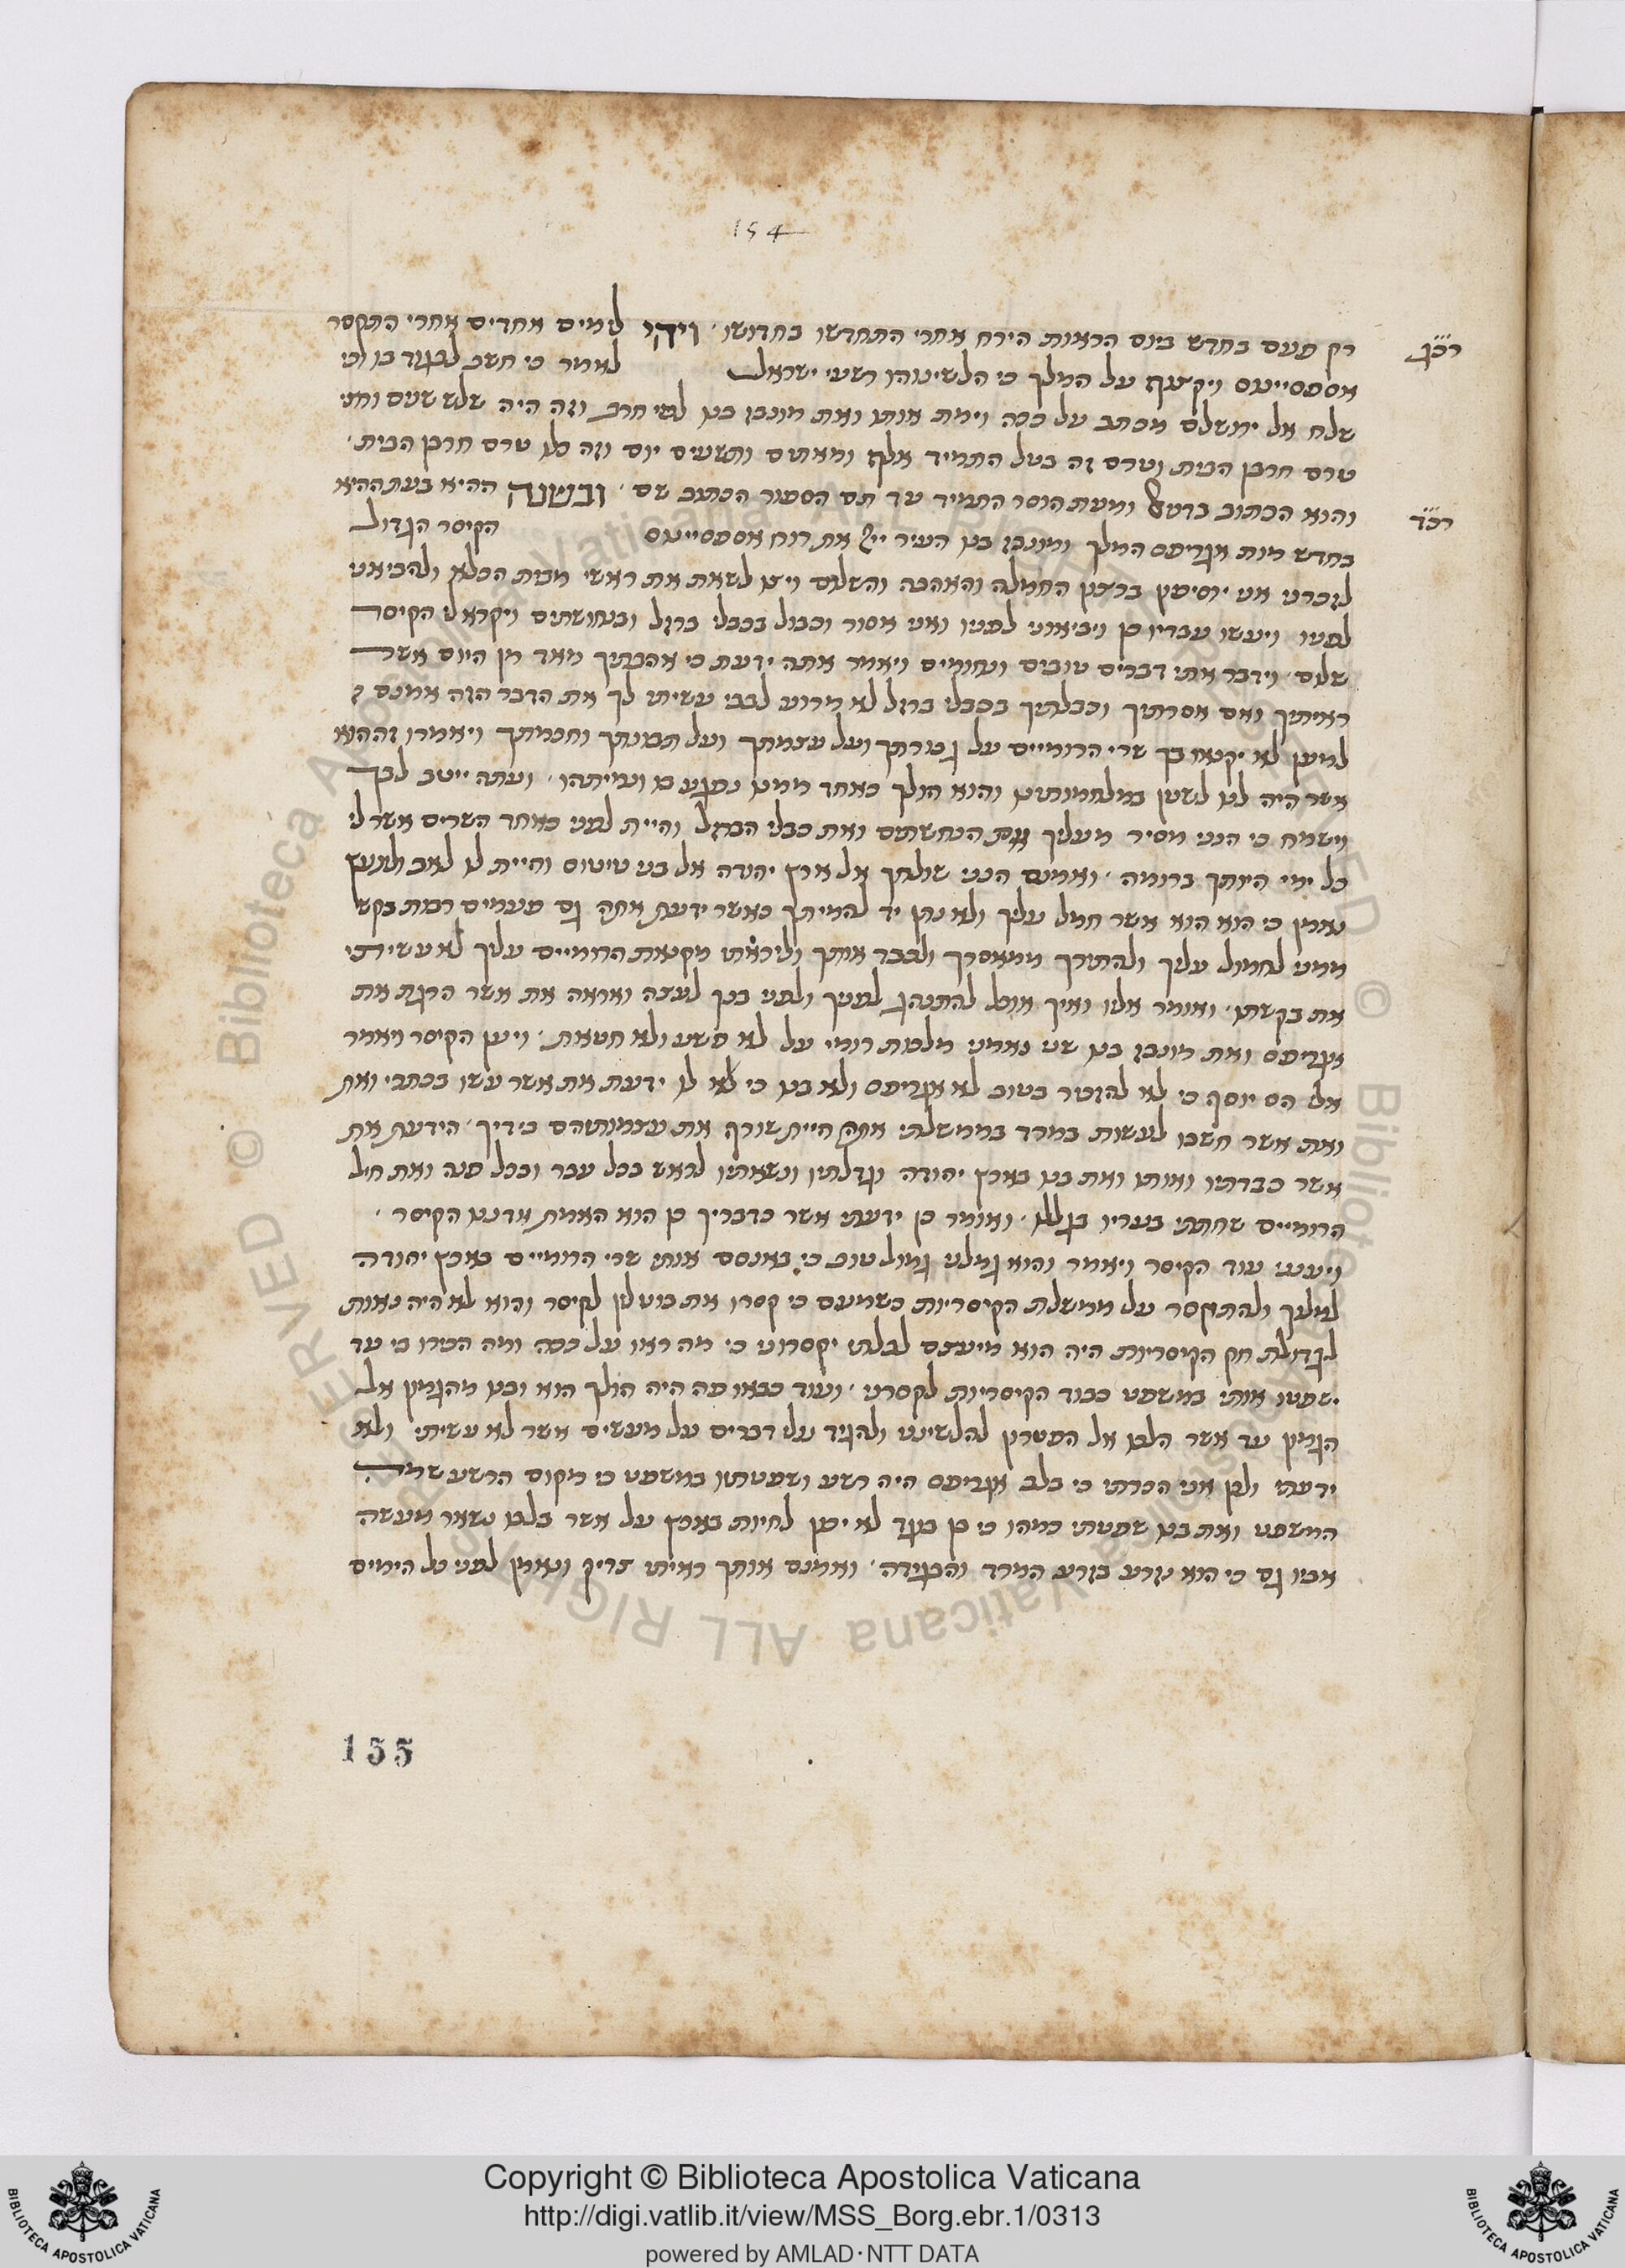 154
רכג
רק פעם בחדש ביום הראות הירח אחרי התחדשו בחדושו׳ ויהי לימים אחדים אחרי התקסר
אספסיינוס ויקצוף על המלך כי הלשינוהו רשעי ישראל לאמר כי חשב לבגוד בו וכי
שלח אל ירושלם מכתב על ככה וימת אותו ואת מונבז בנו לפי חרב וזה היה שלש שנים וחצי
טרם חרבן הבית וטרם זה בטל התמיד אלף ומאתים ותשעים יום וזה כלו טרם חרבן הבית׳
והוא הכתוב בדניאל ומעת הוסר התמיד עד תם הספור הכתוב שם׳ ובשנה ההיא בעת ההיא
רכד
בחדש מות אגריפס המלך ומונבז בנו העיר ייי את רוח אספסיינוס הקיסר הגדול
לזכרני אני יוסיפון ברצון החמלה והאהבה והשלום ויצו לשאת את ראשי מבית הכלא ולהביאני
לפניו ויעשו עבדיו כן ויביאוני לפניו ואני אסור וכבול בכבלי ברזל ובנחושתים ויקרא לי הקיסר
שלום׳ וידבר אתי דברים טובים ונחומים ויאמר אתה ידעת כי אהבתיך מאד מן היום אשר
ראיתיך ואם אסרתיך וכבלתיך בכבלי ברזל לא מרוע לבבי עשיתי לך את הדבר הזה אמנם
למען לא יקנאו בך שרי הרומיים על גבורתך ועל עצמתך ועל תבונתך וחכמתך ויאמרו זה הוא
אשר היה לנו לשטן במלחמותינו והוא הולך כאחד ממנו נפגע בו ונמיתהו׳ ועתה ייטב לבך
וישמח כי הנני מסיר מעליך את הנחשתים ואת כבלי הברזל והיית לפני כאחד השרים אשר לי
כל ימי היותך ברומה׳ ואמנם הנני שולחך אל ארץ יהודה אל בני טיטוס והיית לו לאב וליועץ
נאמן כי הוא הוא אשר חמל עליך ולא נתן יד להמיתך כאשר ידעת אתה גם פעמים רבות בקש
ממני לחמול עליך ולהתירך ממאסרך ולכבד אותך וליראתי מקנאת הרומיים עליך לא עשיתי
את בקשתו׳ ואומר אליו ואיך אוכל להתהלך לפניך ולפני בנך לנצח ואראה את אשר הרגת את
אגריפס ואת מונבז בנו שני נאמני מלכות רומי על לא פשע ולא חטאת׳ ויען הקיסר ויאמר
אלי הס יוסף כי לא להזכיר בטוב לא אגריפס ולא בנו כי לא לו ידעת את אשר עשו בכתבי ואת
ואת אשר חשבו לעשות במרד בממשלתי אתה היית שורף את עצמותיהם בידיך׳ הידעת את
אשר כבדתיו ואותו ואת בנו בארץ יהודה וגדלתיו ונשאתיו לראש בכל עבר ובכל פנה ואת חיל
הרומיים שחתתי בעריו בגללו׳ ואומר כן ידעתי אשר כדבריך כן הוא האמת אדננו הקיסר׳
ויענני עוד הקיסר ויאמר והוא גמלני גמול טוב כי בהאנסם אותי שרי הרומיים בארץ יהודה
למלוך ולהתקסר על ממשלת הקיסריות כשמעם כי קסרו את ביטילין לקיסר והוא לא היה נאות
לגדולת חק הקיסריות היה הוא מיעצם לבלתי יקסרוני כי מה ראו על ככה ומה הכירו בי עד
ישפטו אותי במשפט כבוד הקיסריות לקסרני׳ ועוד בבאו פה היה הולך הוא ובנו מהגמון אל
הגמון עד אשר הלכו אל הפטריון להלשינני ולהגיד עלי דברים על מעשים אשר לא עשיתי ולא
ידעתי ולכן אני הכרתי כי בלב אגריפס היה רשע ושפטתיו במשפט כי מקום הרשע שמה
המשפט ואת בנו שפטתי כמהו כי כן בוגד לא יכון לחיות בארץ על אשר בלבו נשאר מעשה
אביו גם כי הוא נזרע בזרע המרד והבגידה׳ ואמנם אותך ראיתי צדיק ונאמן לפני כל הימים
155
Copyright © Biblioteca Apostolica Vaticana
http://digi.vatlib.it/view/MSS_Borg.ebr.1/0313
powered by AMLAD·NTT DATA